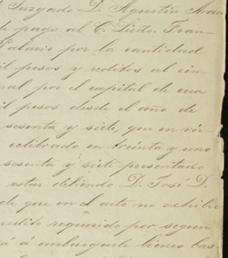 Juzgado D. Agustin
de pago al C. Licdo. Fran-
Salario por la cantidad
mil pesos y reditos al cin-
ual por el capital de una
il pesos desde el año de
sesenta y siete, que en vir-
celebrado en treinta y uno
sesenta y siete presentado
estar debiendo D. José D.
de que en el acto no exhibie
quedito requerido por segun
rá á embargarle bienes bas-